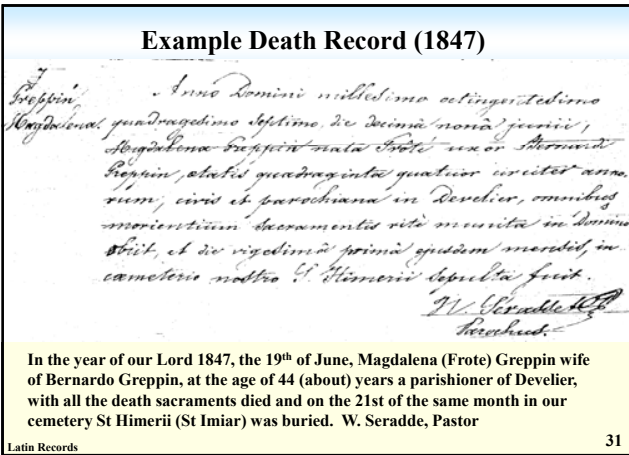 Example Death Record (1847)
7
Greppin
Magdalena
Anno Domini millesimo octingentesimo
quadragesimo septimo, die decimâ nonâ junii,
Magdalena Greppin nata Frôte uxor Bernardi
Greppin, ætatis quadraginta quatuor circiter anno-
rum, civis et parochiana in Develier, omnibus
morientium sacramentis ritè munita in Domino
obiit, et die vigesimâ primâ ejusdem mensis, in
cœmeterio nostro S. Himerii sepulta fuit.
Parochus.
In the year of our Lord 1847, the 19th of June, Magdalena (Frote) Greppin wife
of Bernardo Greppin, at the age of 44 (about) years a parishioner of Develier,
with all the death sacraments died and on the 21st of the same month in our
cemetery St Himerii (St Imiar) was buried. W. Seradde, Pastor
Latin Records
31